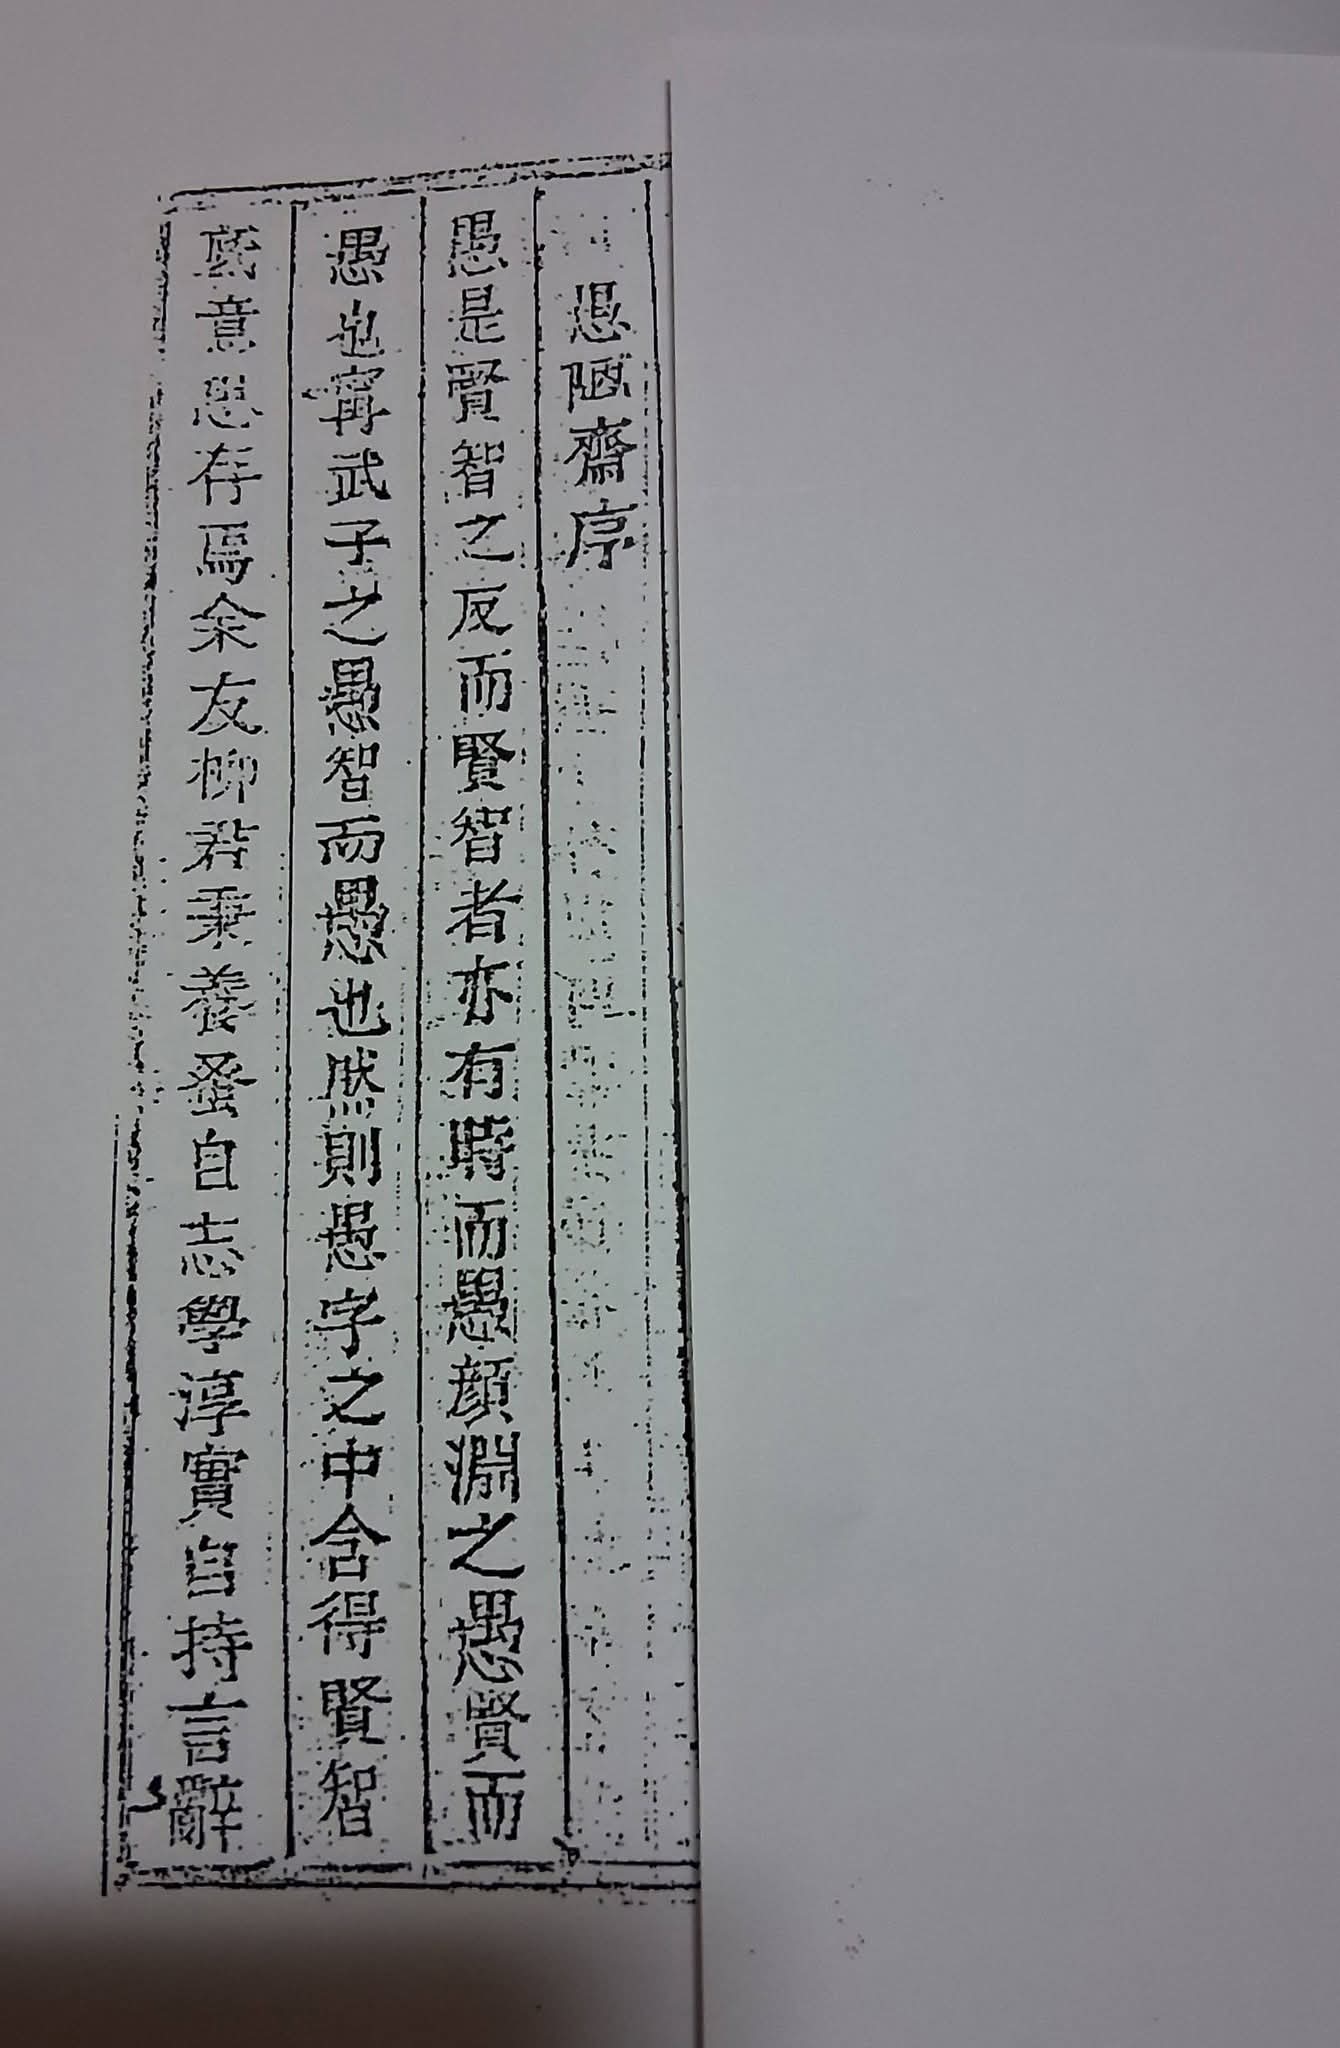 愚陋齋序
愚是賢智之反而賢智者亦有時而愚顔淵之愚賢而
愚也寗武子之愚智而愚也然則愚字之中含得賢智
底意思存焉余友柳君秉養蚤自志學淳實自持言辭